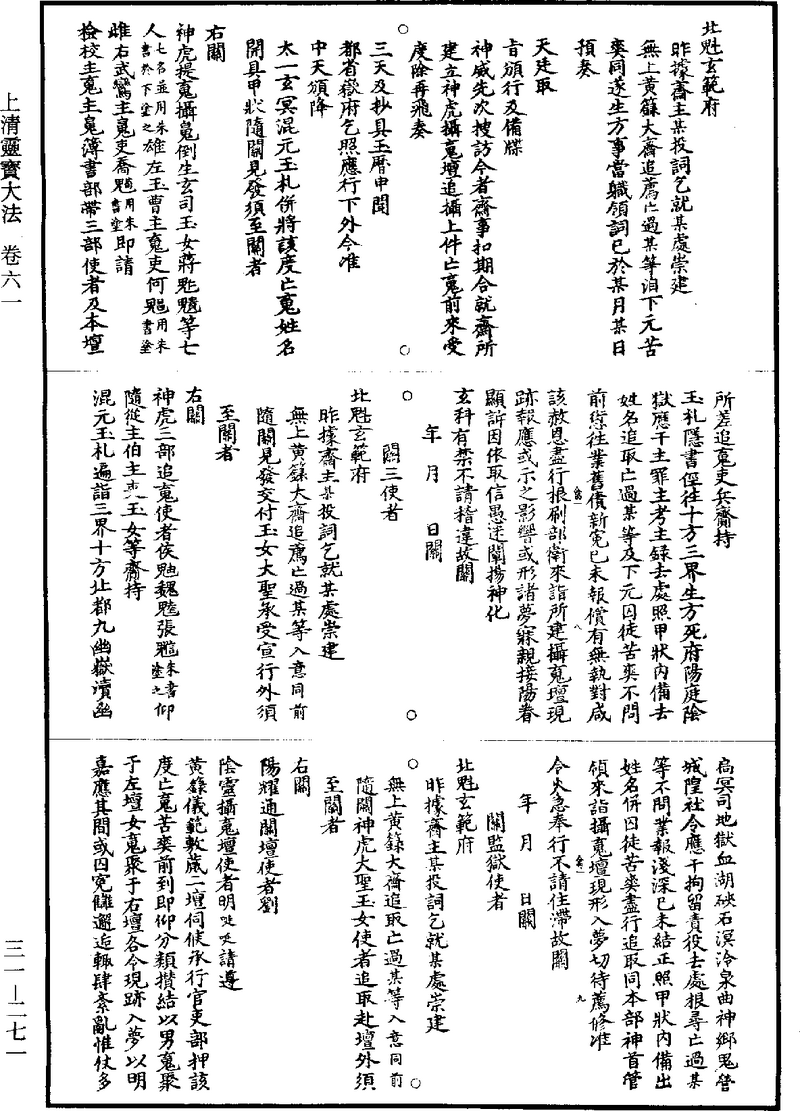 上清靈寶大法 卷六一
三一—二七一
北魁玄範府
昨據齋主某投詞乞就某處崇建
無上黃籙大齋追薦亡過某等洎下元苦
爽同遂生方事當職領詞已於某月某日
預奏
天廷取
旨頒行及備牒
神威先次搜訪今者齋事扣期合就齋所
建立神虎攝䰟壇追攝上件亡䰟前來受
度除再飛奏
三天及抄具玉曆申聞
都省嶽府乞照應行下外今准
中天頒降
太一玄冥混元玉札併將該度亡䰟姓名
開具甲狀隨關見發須至關者
右關
神虎提䰟攝䰟倒生玄司玉女蔣 等七
人七名並用朱書於下塗之雄左玉曹主䰟吏何 用朱書塗
雌右武鸞主䰟吏喬 用朱書塗即請
檢校主䰟主䰟簿書部帶三部使者及本壇
所差追䰟吏兵齎持
玉札隱書徑往十方三界生方死府陽庭陰
獄應干主罪主考主録去處照甲狀內備去
姓名追取亡過某等及下元囚徒苦爽不問
前愆往業舊債新冤已未報償有無執對咸
該赦恩盡行根刷部衛來詣所建攝䰟壇現
跡報應或示之影響或形諸夢寐親接陽眷
顯訴因依取信愚迷闡揚神化
玄科有禁不請稽違故關
年 月 日關
關三使者
北魁玄範府
昨據齋主某投詞乞就某處崇建
無上黃籙大齋追薦亡過某等入意同前
隨關見發交付玉女大聖承受宣行外須
至關者
右關
神虎三部追䰟使者侯 魏 張 朱書塗之仰
隨從主伯主吏玉女等齎持
混元玉札遍詣三界十方北都九幽嶽瀆幽
扃冥司地獄血湖硤石溟泠泉曲神鄉鬼營
城隍社令應干拘留責役去處根尋亡過某
等不問業報淺深已未結正照甲狀內備出
姓名併囚徒苦爽盡行追取同本部神首管
領來詣攝䰟壇現形入夢切待薦修准
令火急奉行不請住滯故關
年 月 日關
關監獄使者
北魁玄範府
昨據齋主某投詞乞就某處崇建
無上黃籙大齋追取亡過某等入意同前
隨關神虎大聖玉女使者追取赴壇外須
至關者
右關
陽耀通關壇使者劉
陰靈攝䰟壇使者明 請遵
黃籙儀範數嚴一壇伺候承行官吏部押該
度亡䰟苦爽前到即仰分類攢結以男䰟聚
于左壇女䰟聚于右壇各令現跡入夢以明
嘉應其間或因冤讎邂逅輒肆紊亂惟仗多